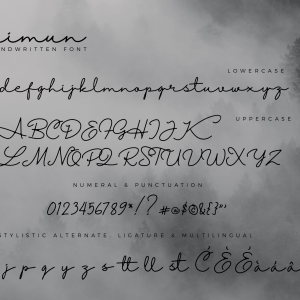 imun
NDWRITTEN FONT
LOWERCASE
defghijklmnopqrstuvwxyz
UPPERCASE
ABCDEFGHIJK
LMNOPQRSTUVWXYZ
NUMERAL & PUNCTUATION
0123456789"!?#@$©%{}"'
STYLISTIC ALTERNATE, LIGATURE & MULTILINGUAL
j p q y z s tt ll st Ć È É à á â